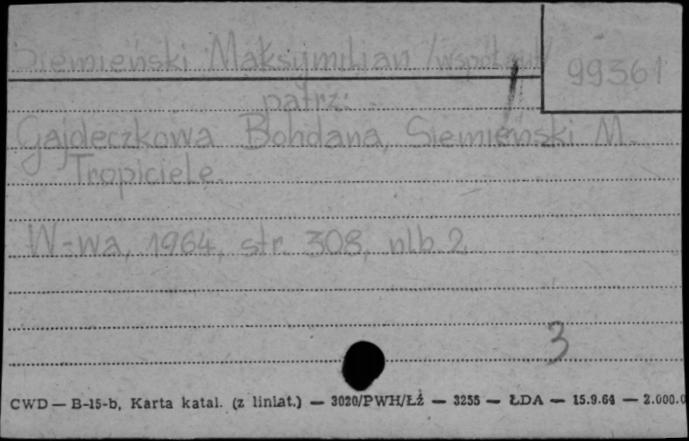 Siemieński Maksymiljan /współaut/
99361
patrz:
Gajdeczkowa Bohdana, Siemieński M.
Tropiciele.
W-wa, 1964, str. 308, nlb. 2
3
CWD — B-15-b, Karta katal. (z liniat.) — 3020/PWH/Łż — 3255 — ŁDA — 15.9.64 — 2.000.0